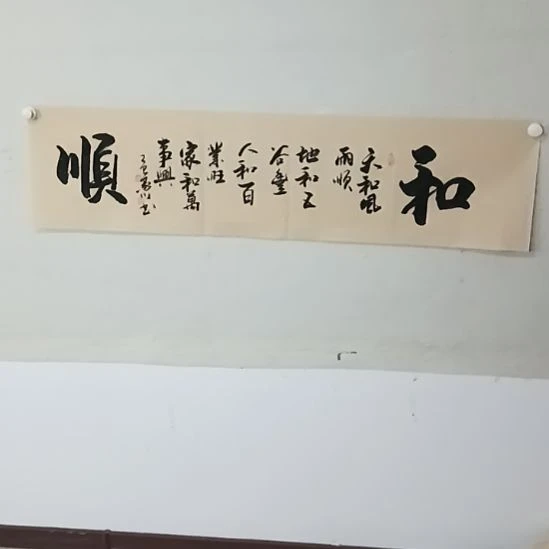 和
天和風
雨順
地和五
谷豐
人和百
業旺
家和萬
事興
順